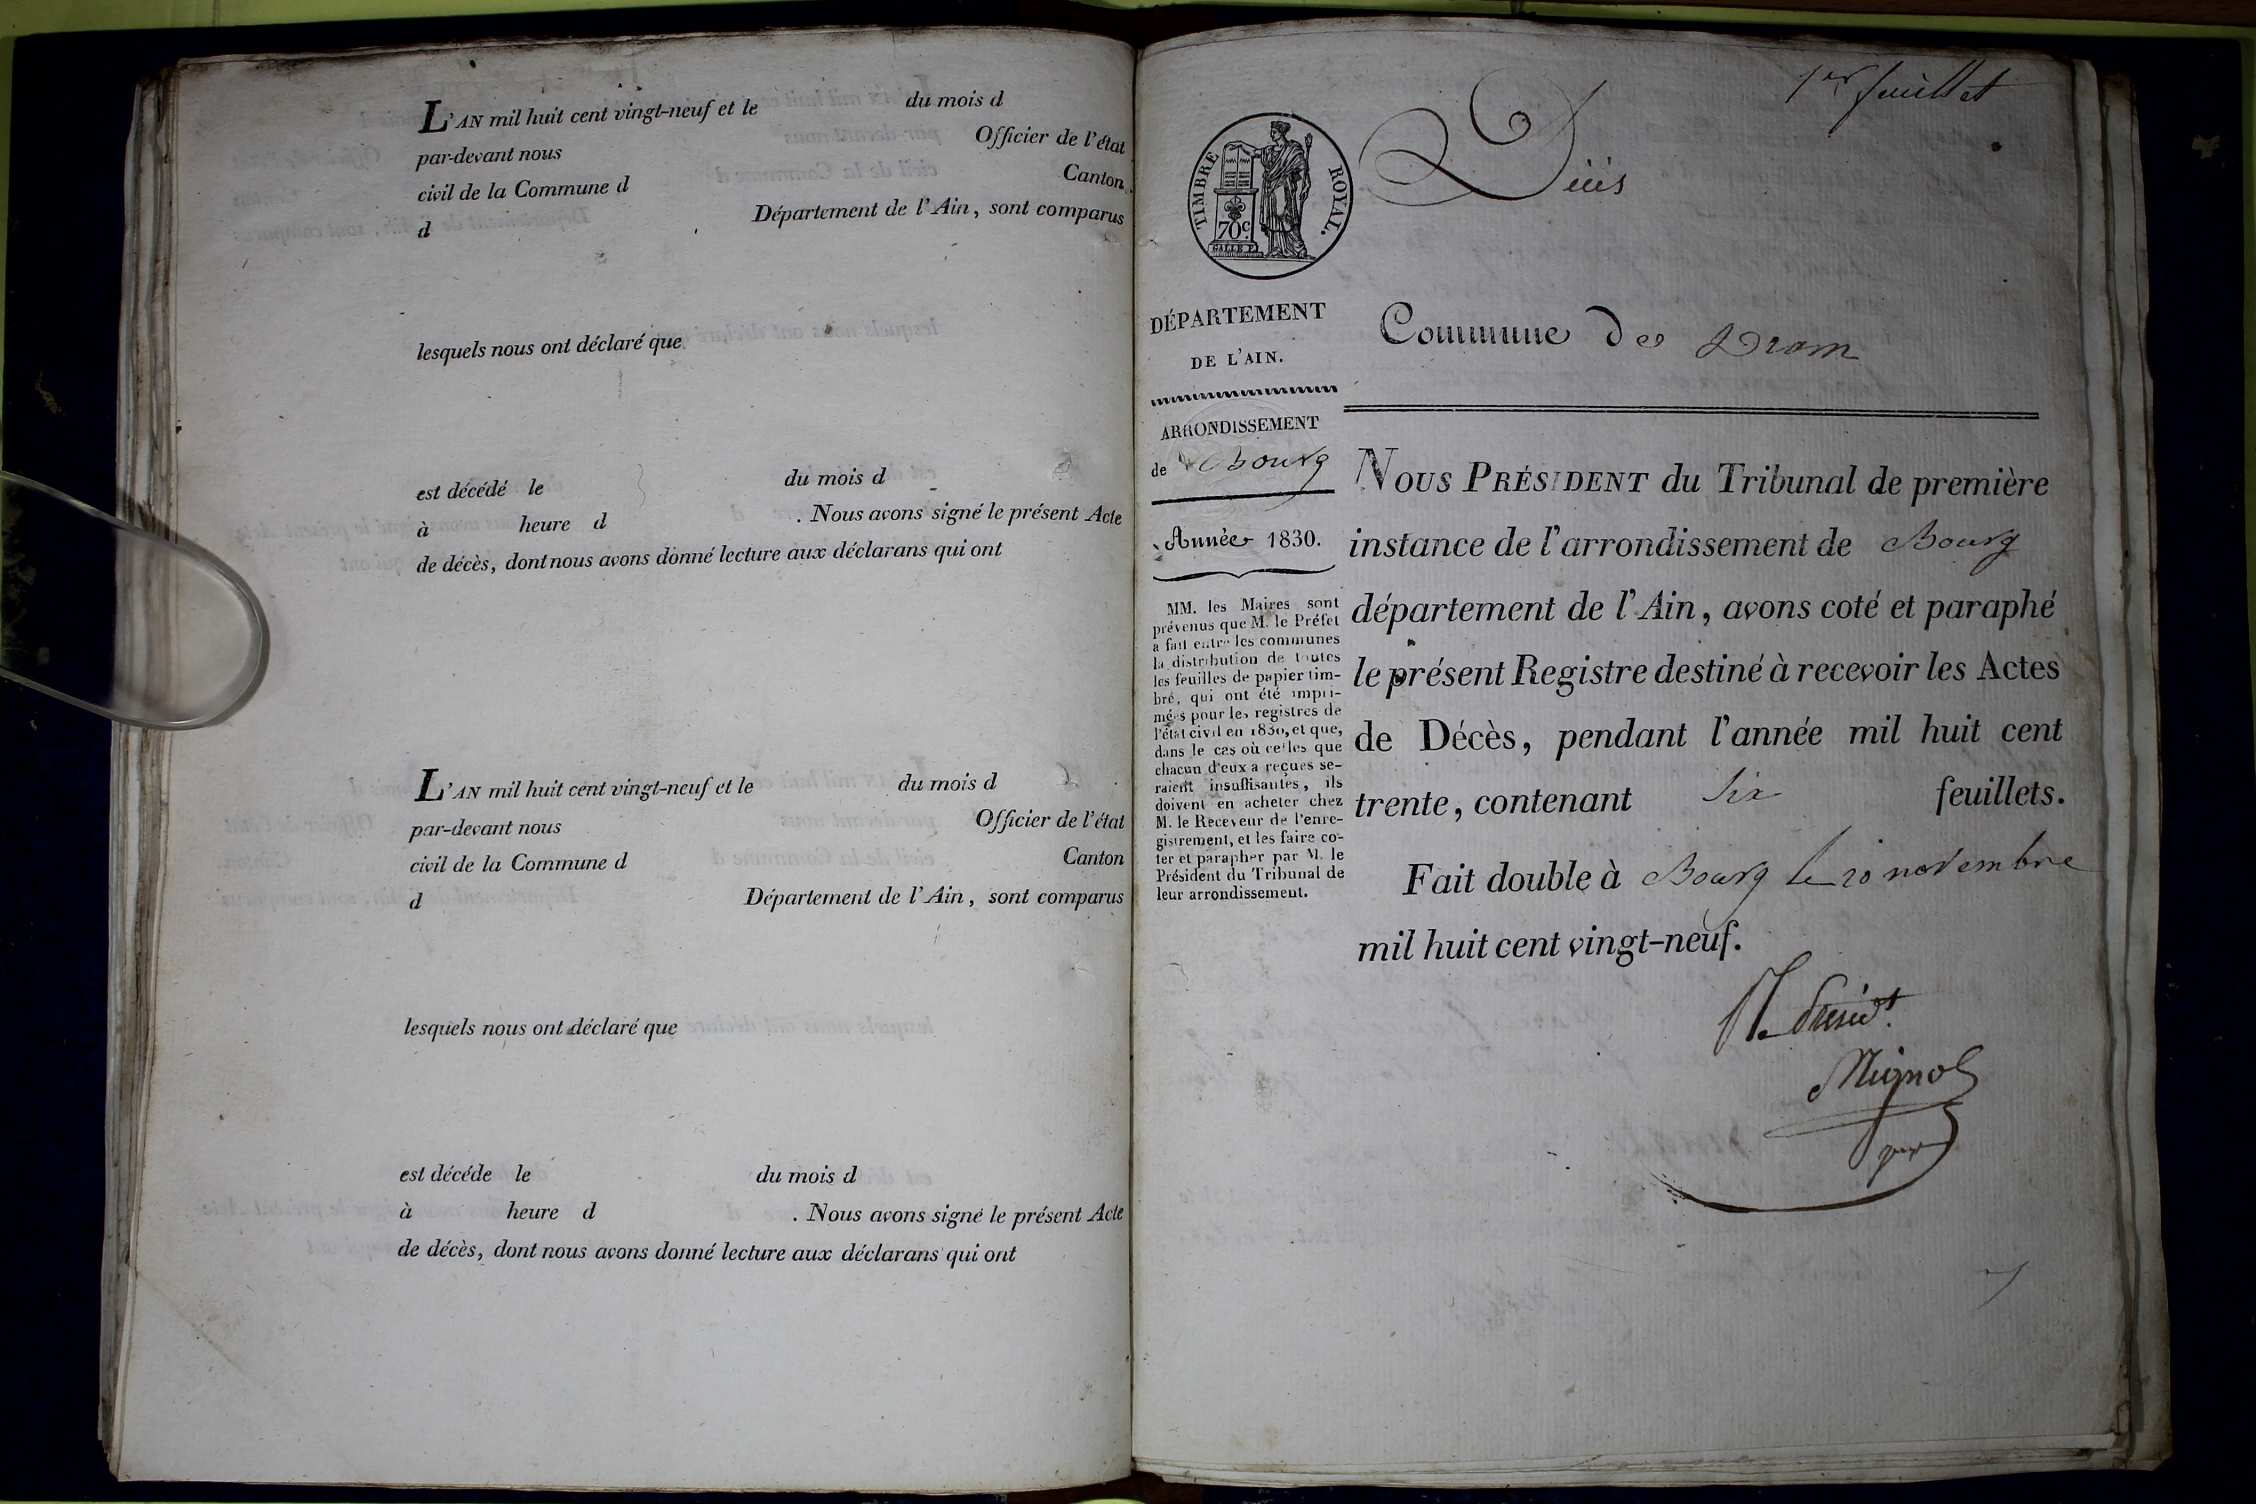 L'AN mil huit cent vingt-neuf et le du mois d
par-devant nous Officier de l'état
civil de la Commune d Canton
d Département de l'Ain, sont comparus
lesquels nous ont déclaré que
est décédé le du mois d
à heure d . Nous avons signé le présent Acte
de décès, dont nous avons donné lecture aux déclarans qui ont
L'AN mil huit cent vingt-neuf et le du mois d
par-devant nous Officier de l'état
civil de la Commune d Canton
d Département de l'Ain, sont comparus
lesquels nous ont déclaré que
est décéde le du mois d
à heure d . Nous avons signé le présent Acte
de décès, dont nous avons donné lecture aux déclarans qui ont
1er feuillet
TIMBRE ROYAL.
70 c.
Décès
DÉPARTEMENT
DE L'AIN.
Commune de Drom
ARRONDISSEMENT
de Bourg
Année 1830.
MM. les Maires sont
prévenus que M. le Préfet
a fait entre les communes
la distribution de toutes
les feuilles de papier tim-
bré, qui ont été impri-
mées pour les registres de
l'état civil en 1830, et que,
dans le cas où celles que
chacun d'eux a reçues se-
raient insuffisantes, ils
doivent en acheter chez
M. le Receveur de l'enre-
gistrement, et les faire co-
ter et parapher par M. le
Président du Tribunal de
leur arrondissement.
NOUS PRÉSIDENT du Tribunal de première
instance de l'arrondissement de Bourg
département de l'Ain, avons coté et paraphé
le présent Registre destiné à recevoir les Actes
de Décès, pendant l'année mil huit cent
trente, contenant six feuillets.
Fait double à Bourg le 20 novembre
mil huit cent vingt-neuf.
Le Présidt.